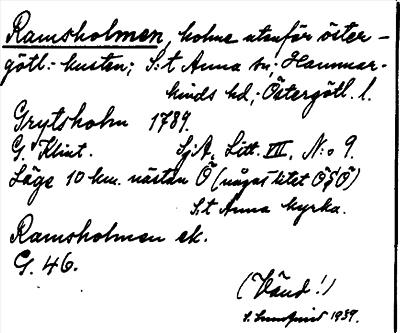 Ramsholmen, holme utanför öster-
götl:-kusten; S:t Anna sn; Hammar-
kinds hd; Östergötl. l.
Grytsholm 1789.
G. Klint. Sj.A. Litt. VII, N:o 9.
Läge 10 km. nästan Ö (något litet ÖSÖ)
S:t Anna kyrka.
Ramsholmen ek.
G. 46.
(Vänd!)
S. Lundquist 1939.